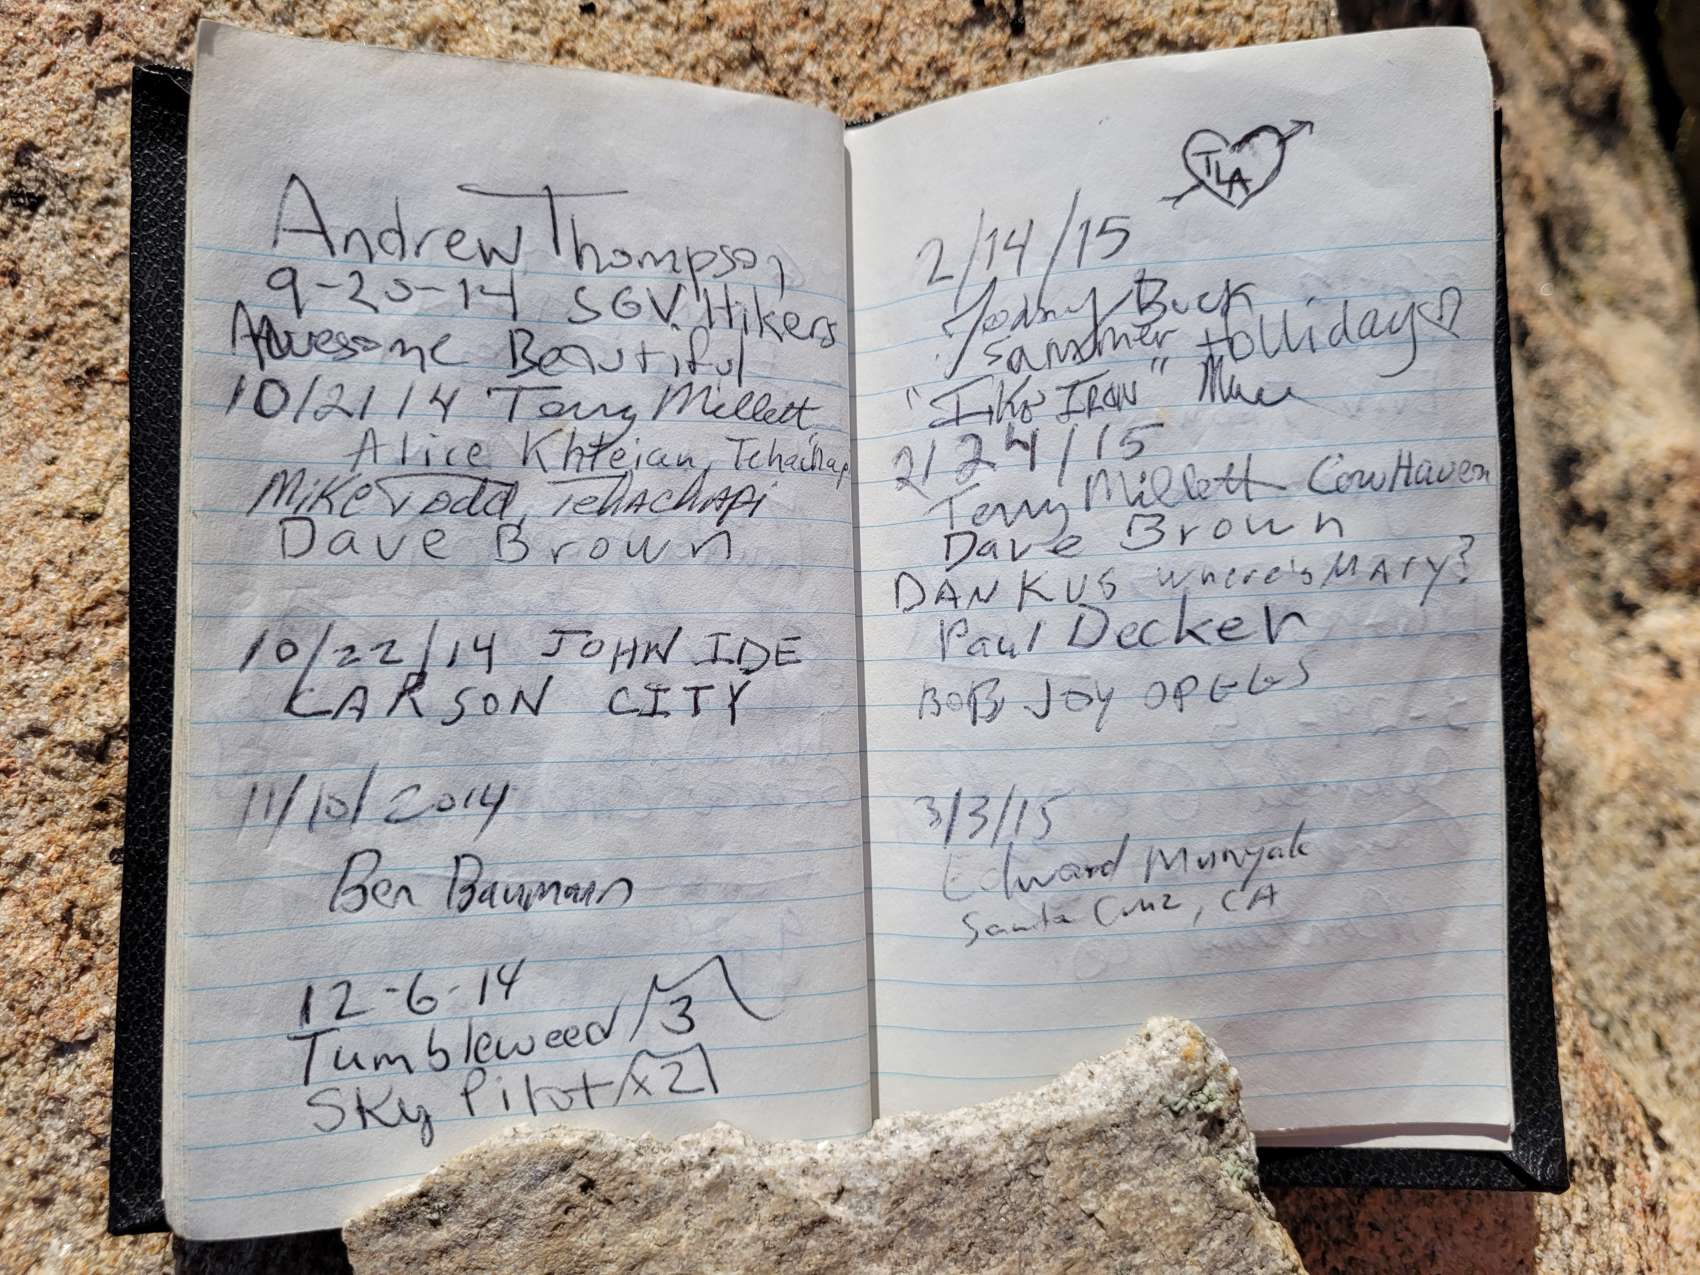 Andrew Thompson
9-20-14 SGV Hikers
Awesome Beautiful
10/21/14 Terry Millett
Alice Khteian, Tehachap
Mike Todd, TehachApi
Dave Brown
10/22/14 JOHN IDE
CARSON CITY
11/10/2014
Ben Baumann
12-6-14
Tumbleweed 3
Sky Pilot x2
TLA
2/14/15
Buck
Summer Holliday
"Iko IRON"
2/24/15
Terry Millett Cow Haven
Dave Brown
DAN KUS where's MARY?
Paul Decker
BOB JOY OPGGS
3/3/15
Edward Munyak
Santa Cruz, CA